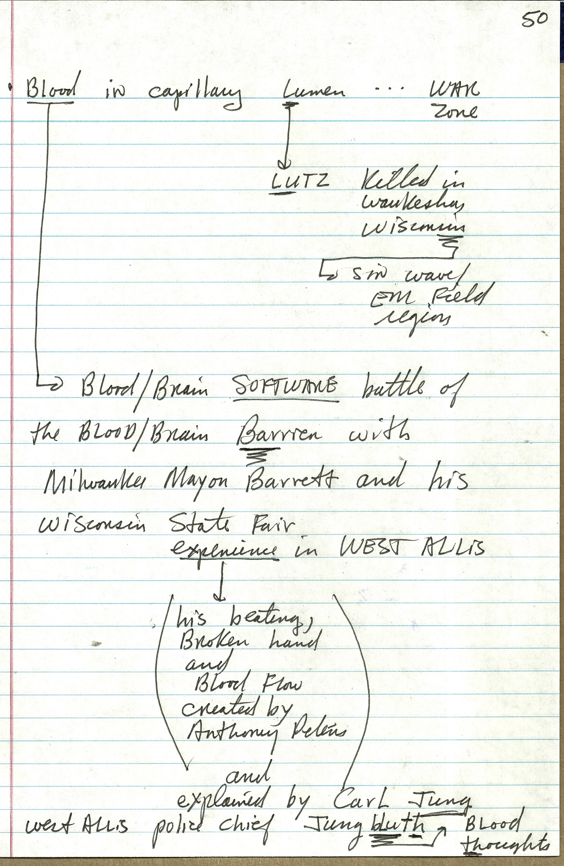 50
Blood in capillary Lumen ... WAR
Zone
LUTZ Killed in
Waukesha,
Wisconsin
sin wave/
EM Field
region
Blood/Brain SOFTWARE battle of
the BLOOD/Brain Barrier with
Milwaukee Mayor Barrett and his
Wisconsin State Fair
experience in WEST ALLIS
(his beating,
Broken hand
and
Blood Flow
created by
Anthony Peters)
and
explained by Carl Jung
West Allis police chief Jungbluth Blood
thoughts